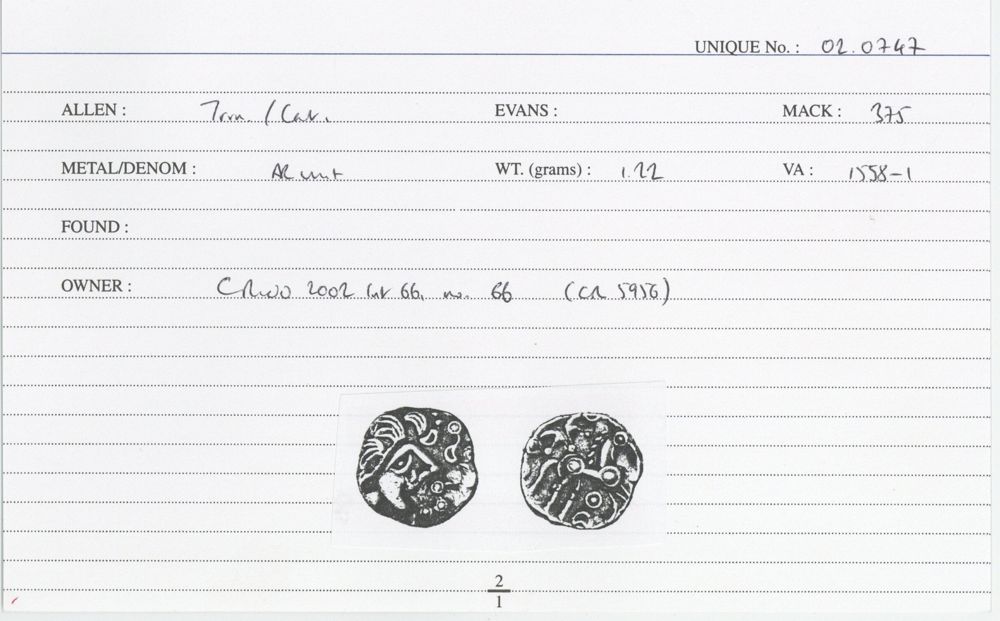 UNIQUE No. : 02.0747
ALLEN : Trin. / Cat. EVANS : MACK : 375
METAL/DENOM : AR unit WT. (grams) : 1.22 VA : 1558-1
FOUND :
OWNER : 2002 list 66, no. 66 (CR 5956)
2
1